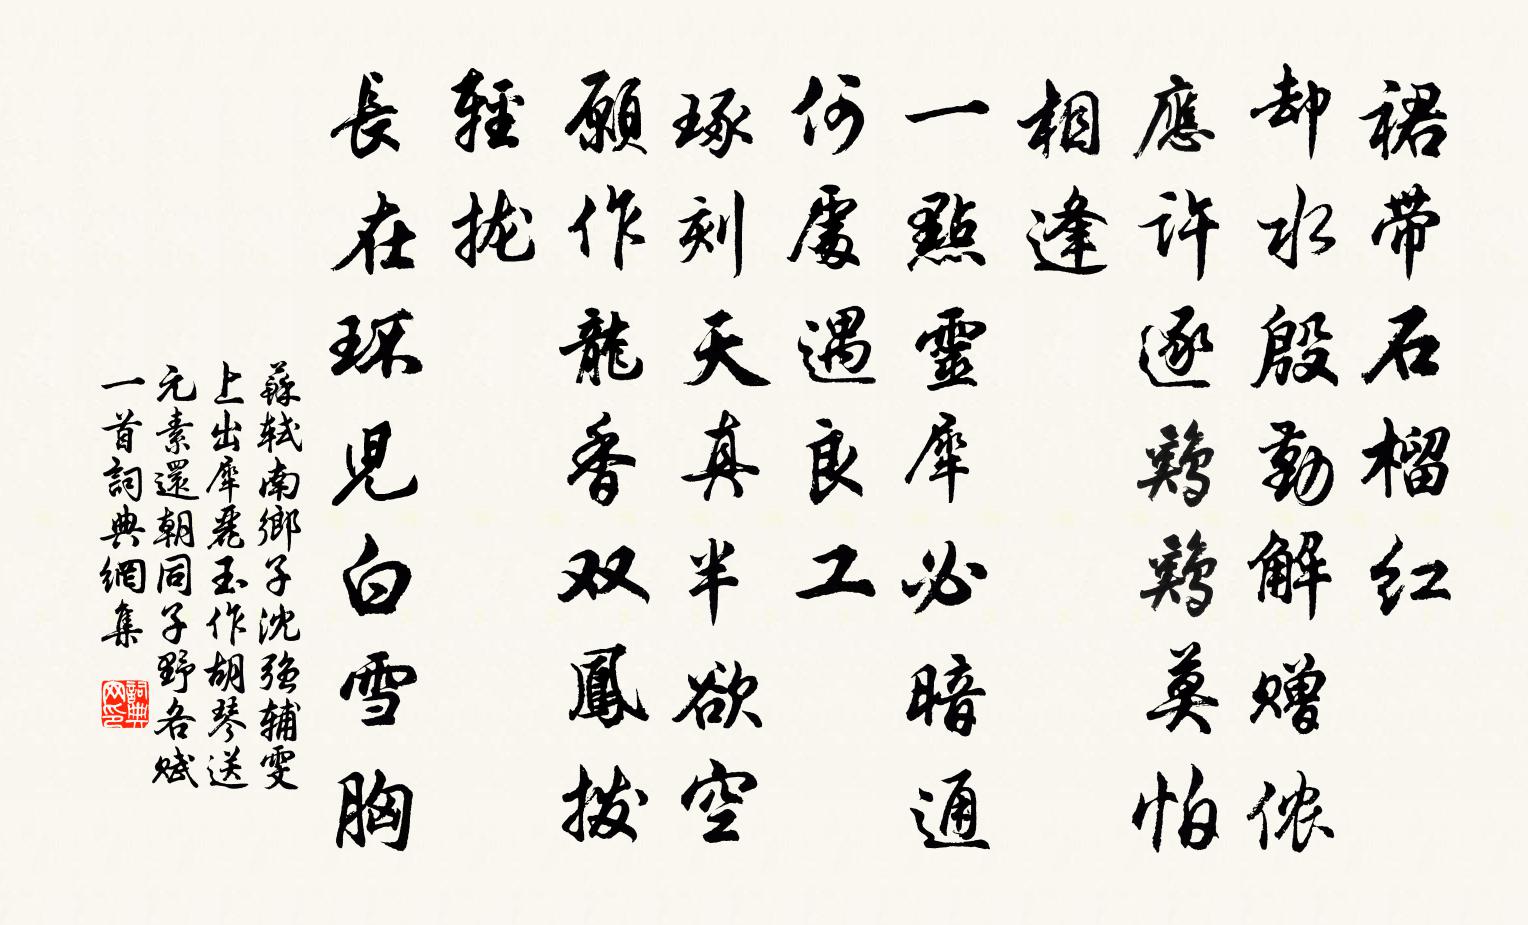 裙带石榴红
却水殷勤解赠侬
應许逐鷄鷄莫怕
相逢
一點靈犀必暗通
何處遇良工
琢刻天真半欲空
願作龍香双鳳撥
輕拢
長在环兒白雪胸
蘇轼南鄉子沈強辅雯
上出犀麗玉作胡琴送
元素還朝同子野各赋
一首詞典網集
詞典網印